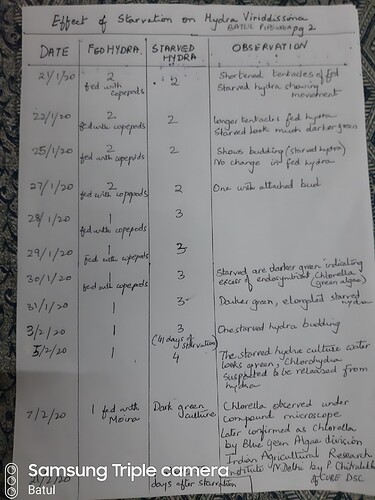 Effect of Starvation on Hydra Viriddissima
BATUL pg 2
DATE FEDHYDRA STARVED HYDRA OBSERVATION
21/1/20 2 fed with copepods 2 Shortened tentacles of fed
Starved hydra showing movement
22/1/20 2 fed with copepods 2 longer tentacles fed hydra
Starved look much darker green
25/1/20 2 fed with copepods 2 Shows budding (starved hydra)
No change in fed hydra
27/1/20 2 fed with copepods 2 One with attached bud
28/1/20 1 fed with copepods 3
29/1/20 1 fed with copepods 3
30/1/20 1 fed with copepods 3 Starved are darker green indicating
excess of endosymbiont, Chlorella
(green algae)
31/1/20 1 3 Darker green, elongated starved
hydra
3/2/20 1 3 One starved hydra budding
(41 days of starvation)
5/2/20 1 4 The starved hydra culture water
looks green, Chlorohydra
suspected to be released from
hydra
7/2/20 1 fed with Moina Dark green culture Chlorella observed under
compound microscope
Later confirmed as Chlorella
by Blue gean Algae division
Indian Agricultural Research
Institute N Delhi by P. Chitralekha
of CUBE DSC
days after starvation
Samsung Triple camera
Batul